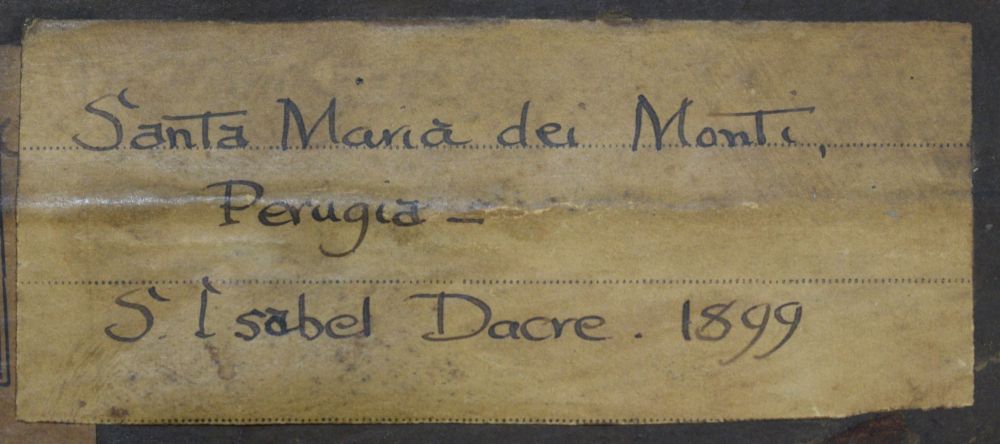 Santa Maria dei Monti,
Perugia –
S. Isabel Dacre. 1899